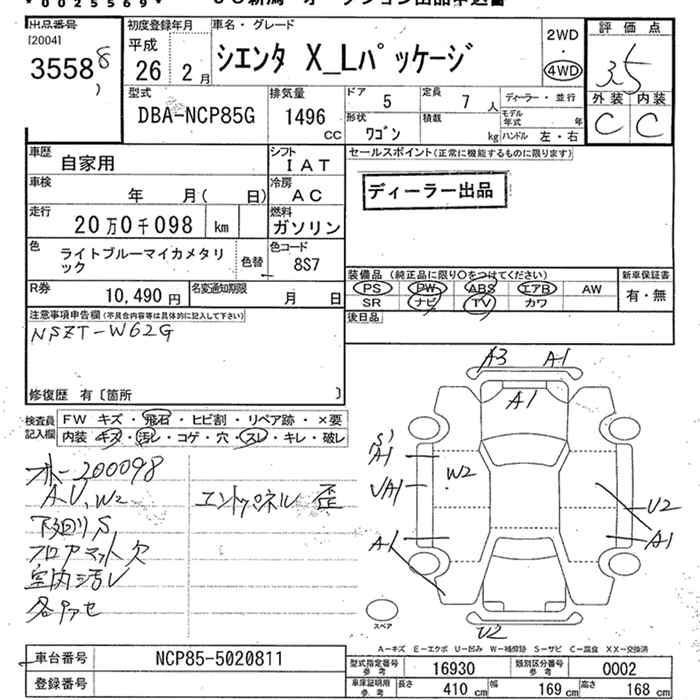 * 0 0 2 5 5 6 9 *
出品番号 初度登録年月 車名・グレード 2WD 評価点
[2004] 平成 シエンタ X_Lパッケージ ・
3558 8 26 年 2 月 4WD 3.5
型式 排気量 ドア 5 定員 7 人 ディーラー・並行 外装 内装
DBA-NCP85G 1496 cc 形状 ワゴン 積載 kg モデル年式 年 C C
ハンドル 左・右
車歴 自家用 シフト IAT セールスポイント(正常に機能するものに限ります)
車検 年 月( 日) 冷房 AC ディーラー出品
走行 20万0千098 km 燃料 ガソリン
色 ライトブルーマイカメタリック 色替 色コード 8S7
装備品 (純正品に限り○をつけてください) 新車保証書
R券 10,490円 名変通知期限 月 日 PS PW ABS エアB AW 有・無
SR ナビ TV カワ
注意事項申告欄(不具合内容等は具体的に記入して下さい) 後日品
NSZT-W62G
修復歴 有〔箇所 〕
検査員記入欄 FW キズ・飛石・ヒビ割・リペア跡・×要
内装・キズ・汚レ・コゲ・穴・スレ・キレ・破レ
オドー200098
A、U、W2 エンドパネル 歪
下廻りS
フロアマット欠
室内汚レ
各アセ
A3 A1
A1
S A1 W2
UA1 U2
A1 A1
スペア U2
A-キズ E-エクボ U-凹み W-補修跡 S-サビ C-腐食 XX-交換済
車台番号 NCP85-5020811 型式指定番号 参考 16930 類別区分番号 参考 0002
登録番号 車庫証明用 参考 長さ 410 cm 幅 169 cm 高さ 168 cm